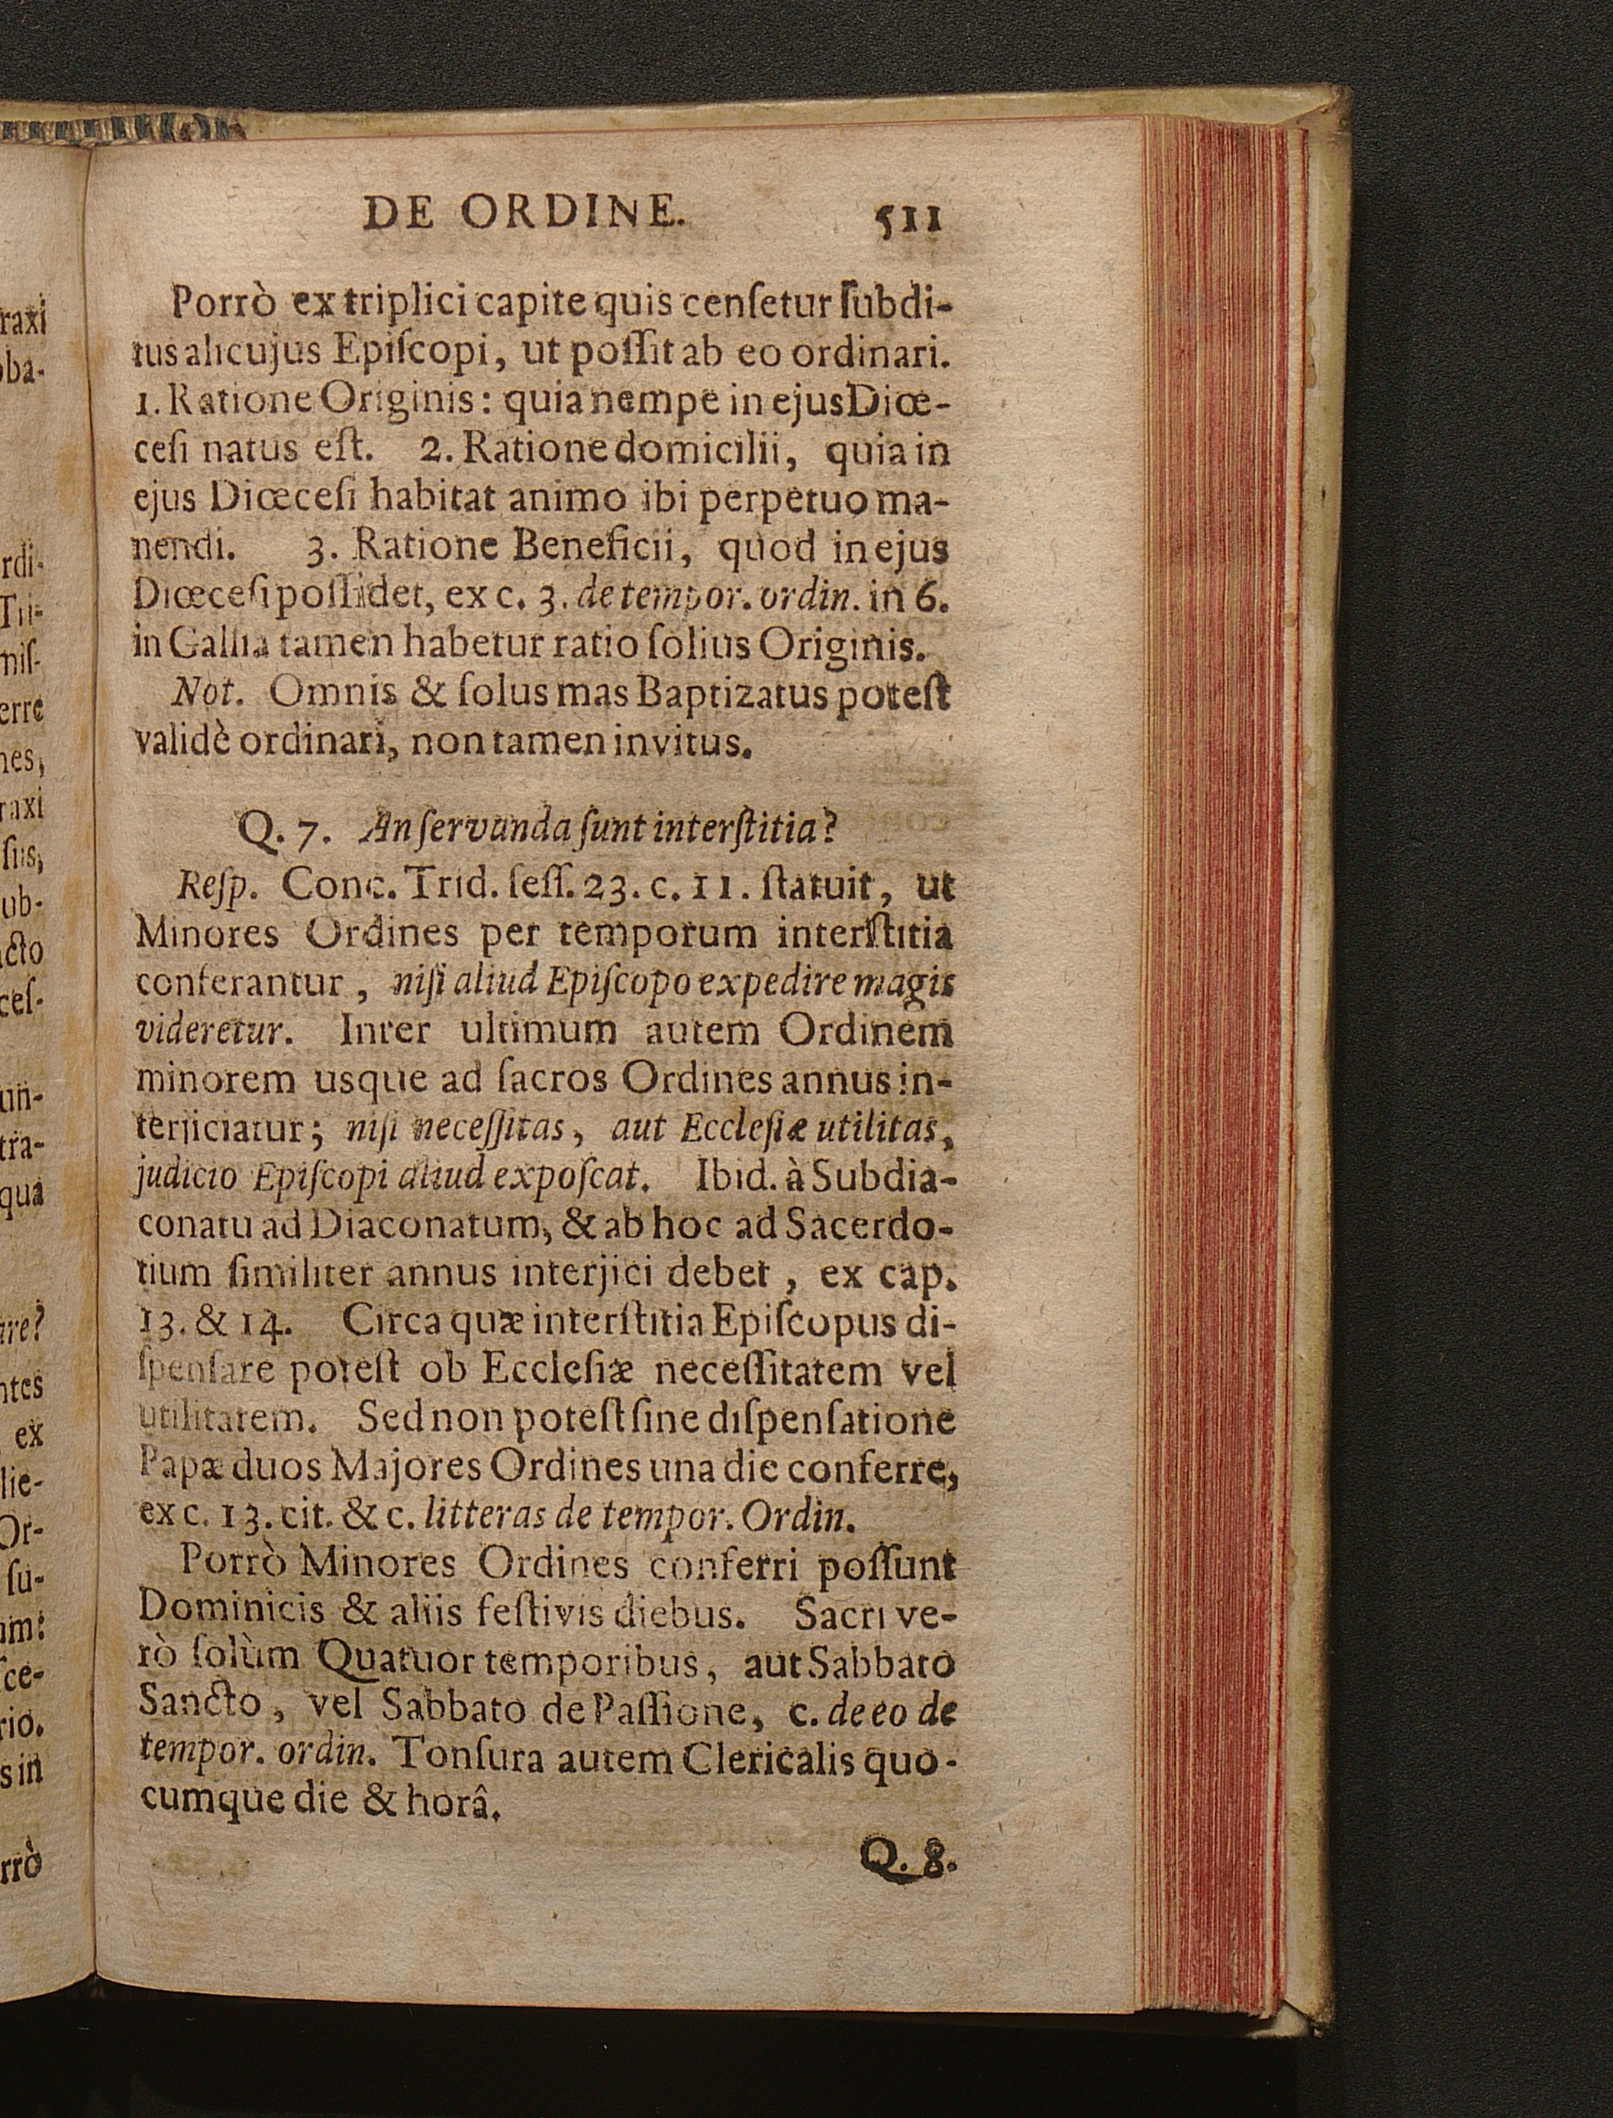 DE ORDINE. 511
Porrò ex triplici capite quis censetur subdi-
tus alicujus Episcopi, ut possit ab eo ordinari.
1. Ratione Originis: quia nempe in ejus Diœ-
cesi natus est. 2. Ratione domicilii, quia in
ejus Diœcesi habitat animo ibi perpetuo ma-
nendi. 3. Ratione Beneficii, quod in ejus
Diœcesi possidet, ex c. 3. de tempor. ordin. in 6.
in Gallia tamen habetur ratio solius Originis.
Not. Omnis & solus mas Baptizatus potest
validè ordinari, non tamen invitus.
Q. 7. An servanda sunt interstitia?
Resp. Conc. Trid. sess. 23. c. 11. statuit, ut
Minores Ordines per temporum interstitia
conferantur, nisi aliud Episcopo expedire magis
videretur. Inter ultimum autem Ordinem
minorem usque ad sacros Ordines annus in-
terjiciatur; nisi necessitas, aut Ecclesiæ utilitas,
judicio Episcopi aliud exposcat. Ibid. à Subdia-
conatu ad Diaconatum, & ab hoc ad Sacerdo-
tium similiter annus interjici debet, ex cap.
13. & 14. Circa quæ interstitia Episcopus di-
spensare potest ob Ecclesiæ necessitatem vel
utilitatem. Sed non potest sine dispensatione
Papæ duos Majores Ordines una die conferre,
ex c. 13. cit. & c. litteras de tempor. Ordin.
Porrò Minores Ordines conferri possunt
Dominicis & aliis festivis diebus. Sacri ve-
rò solùm Quatuor temporibus, aut Sabbato
Sancto, vel Sabbato de Passione, c. de eo de
tempor. ordin. Tonsura autem Clericalis quo-
cumque die & horâ.
Q. 8.